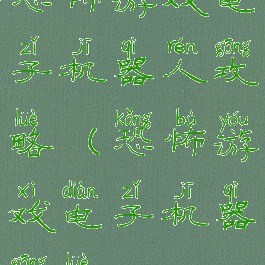 恐怖游戏电
zǐ jī qì rén gōng
子机器人攻
lüè kǒng bù yóu
略(恐怖游
xì diàn zǐ jī qì
戏电子机器
gōng lüè